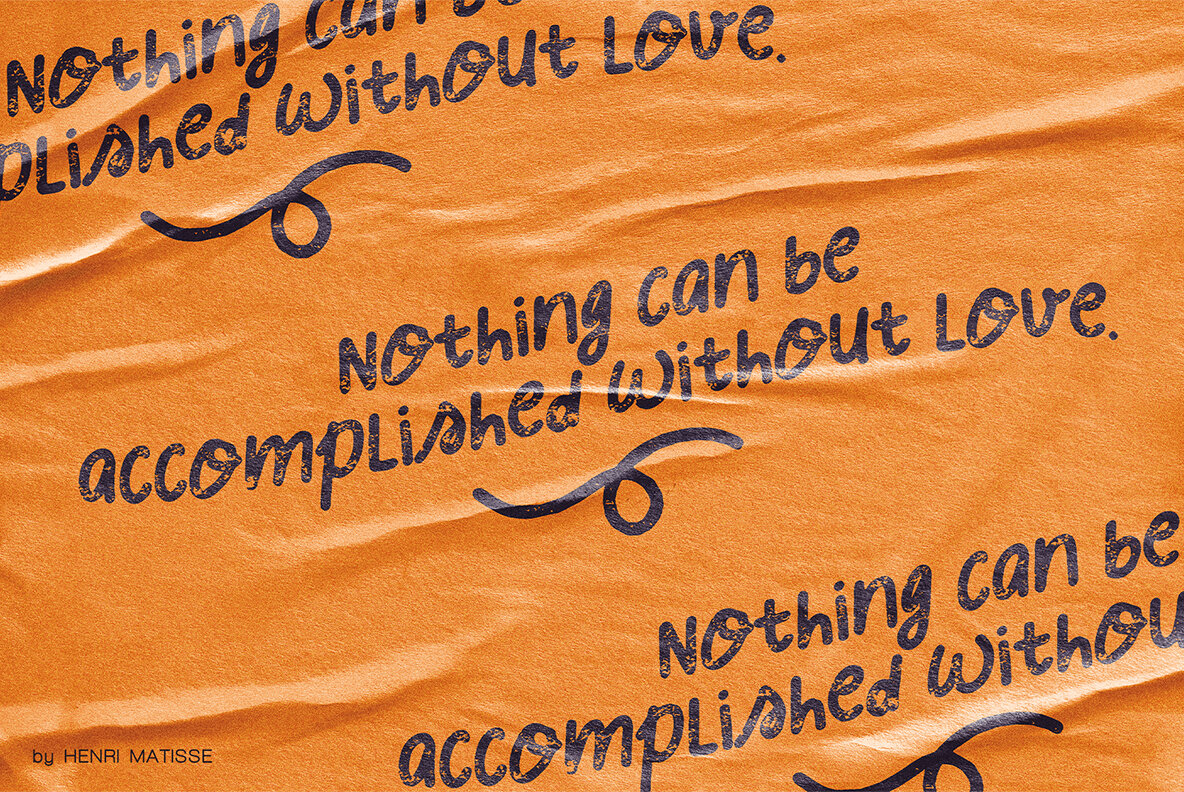 Nothing can be
plished without Love.
Nothing can be
accomplished without Love.
Nothing can be
accomplished withou
by HENRI MATISSE